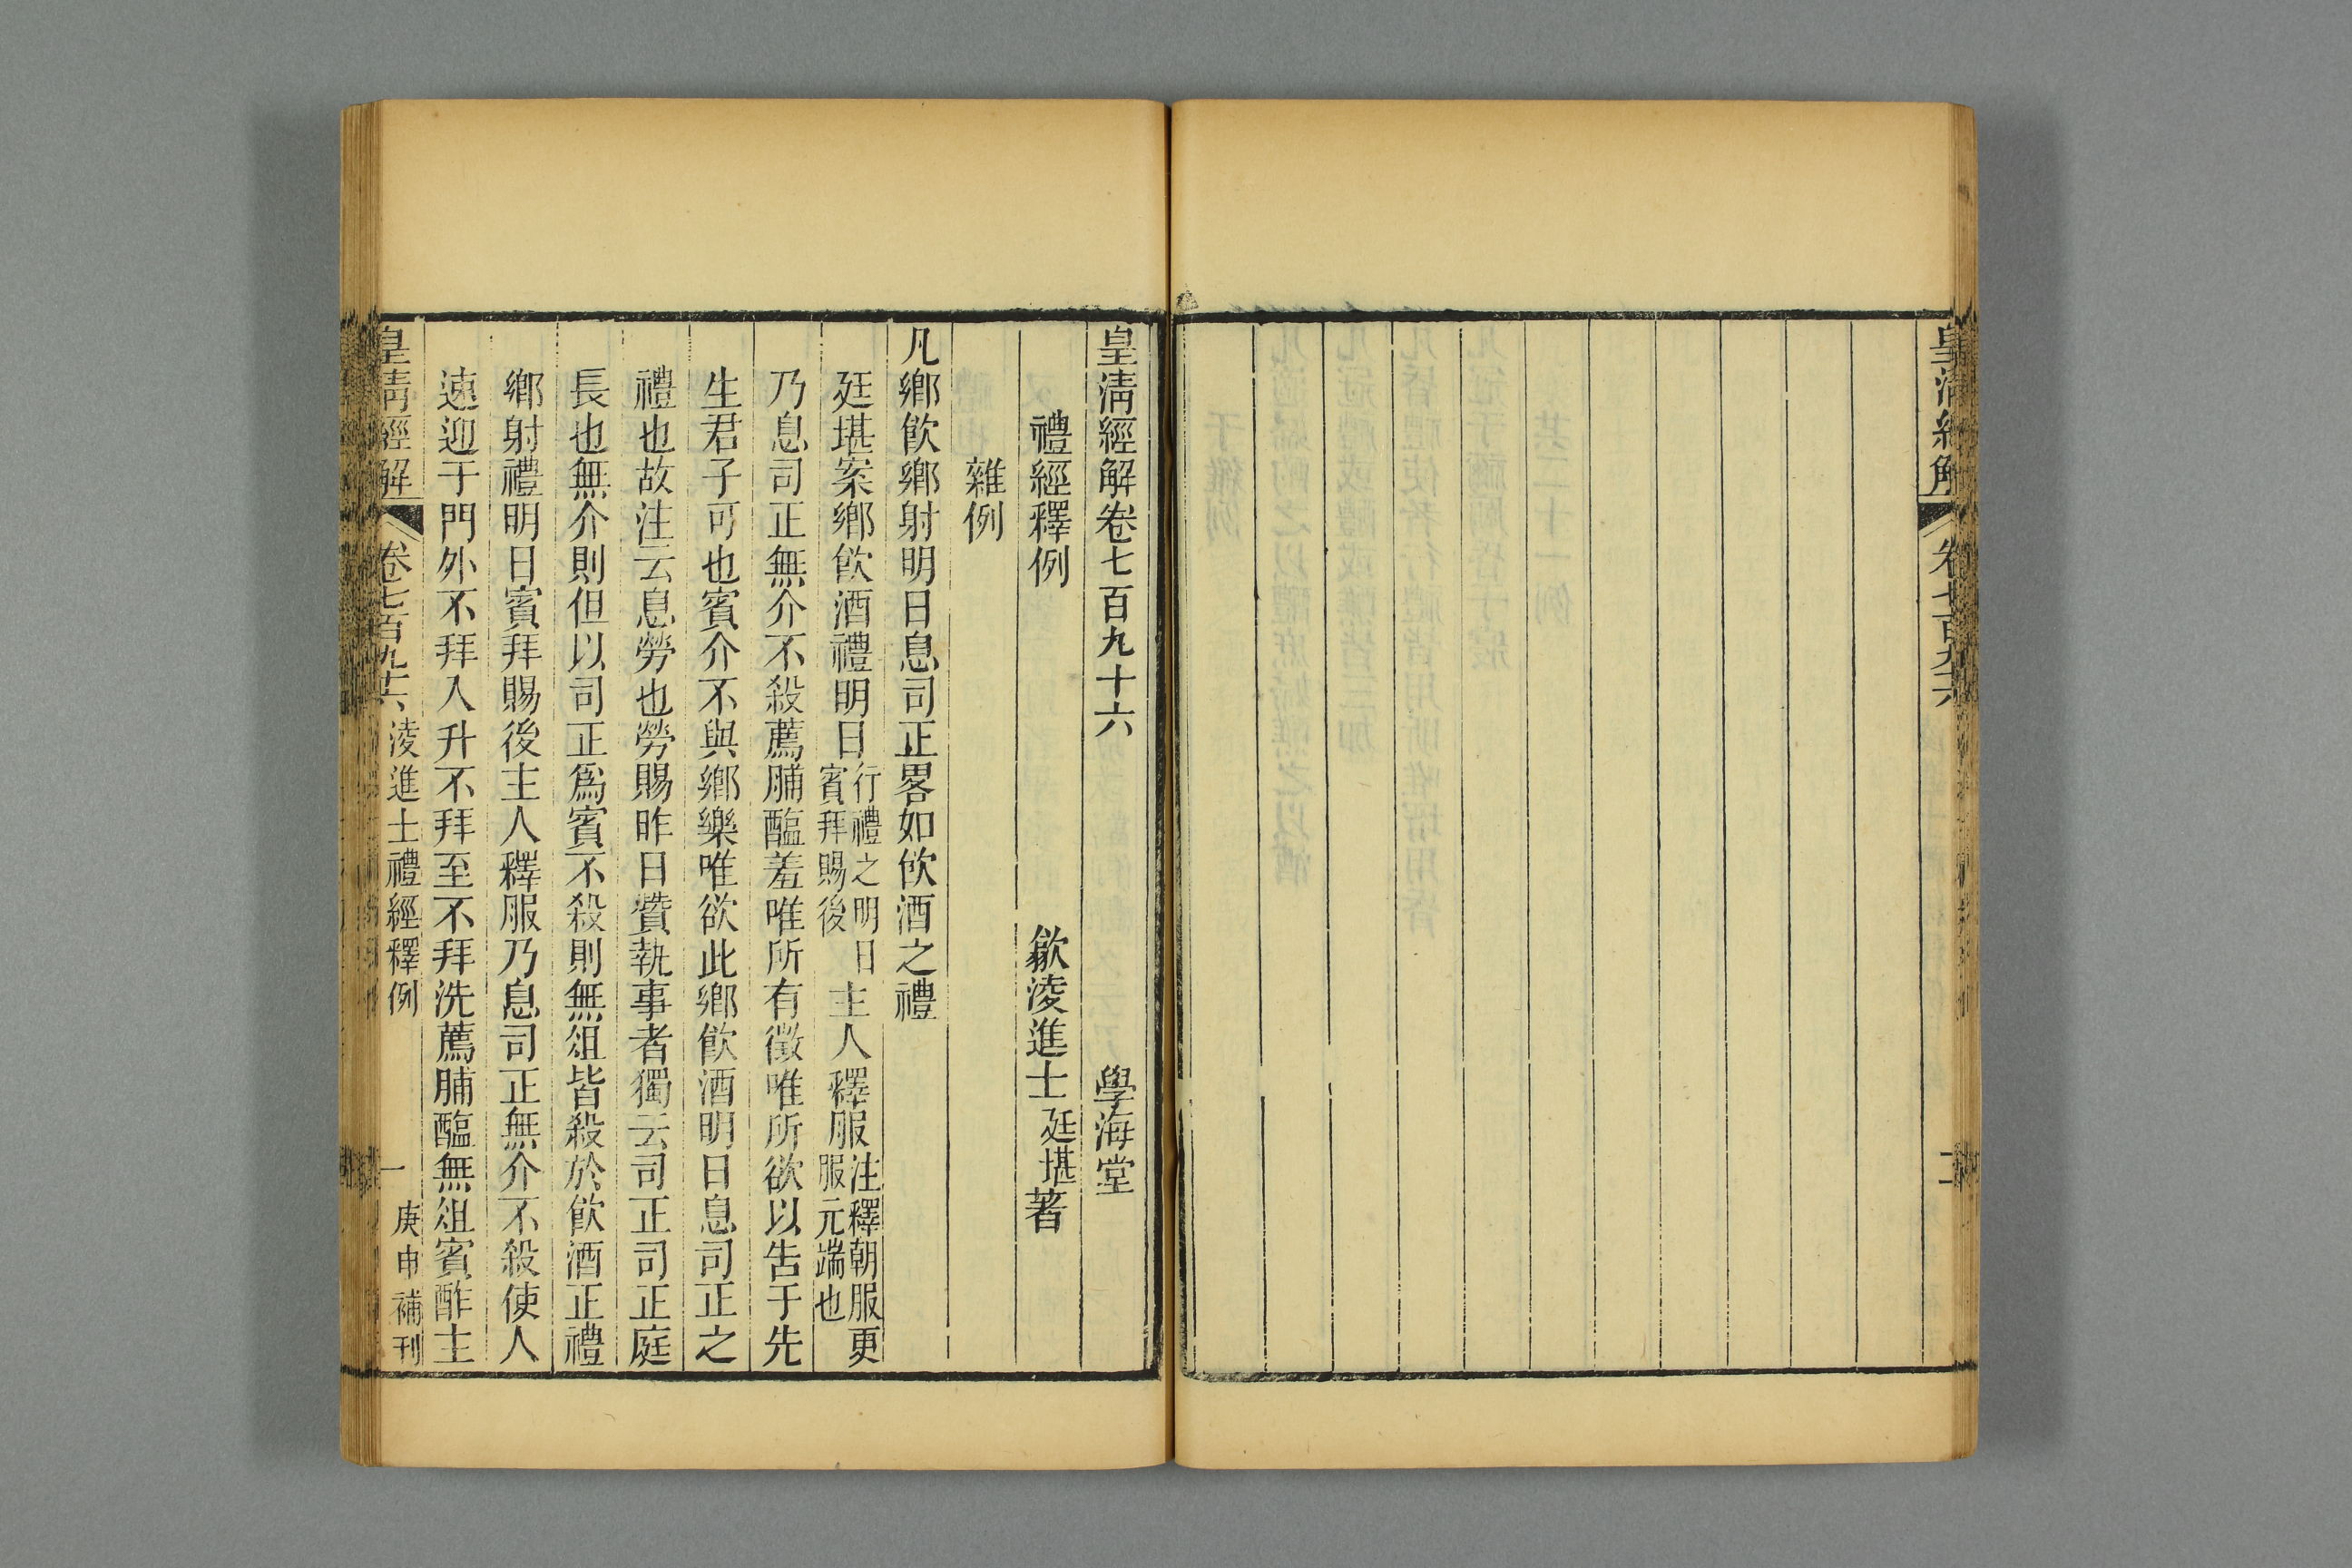 皇清經解卷七百九十六 學海堂
禮經釋例 歙淩進士廷堪著
雜例
凡鄉飮鄉射明日息司正畧如飮酒之禮
廷堪案鄉飮酒禮明日行禮之明日賓拜賜後主人釋服注釋朝服更服元端也
乃息司正無介不殺薦脯醢羞唯所有徵唯所欲以告于先
生君子可也賓介不與鄉樂唯欲此鄉飮酒明日息司正之
禮也故注云息勞也勞賜昨日贊執事者獨云司正司正庭
長也無介則但以司正爲賓不殺則無俎皆殺於飮酒正禮
鄉射禮明日賓拜賜後主人釋服乃息司正無介不殺使人
速迎于門外不拜入升不拜至不拜洗薦脯醢無俎賓酢主
皇清經解 卷七百九十六 淩進士禮經釋例 一 庚申補刊